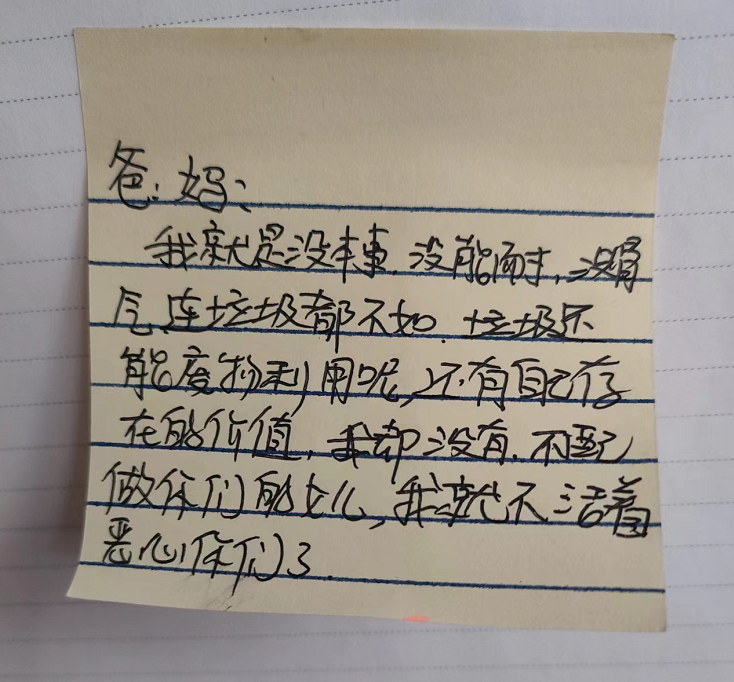 爸:妈:
我就是没本事,没能耐,没骨
气,连垃圾都不如.垃圾还
能废物利用呢,还有自己存
在的价值,我却没有.不配
做你们的女儿,我就不活着
恶心你们了.